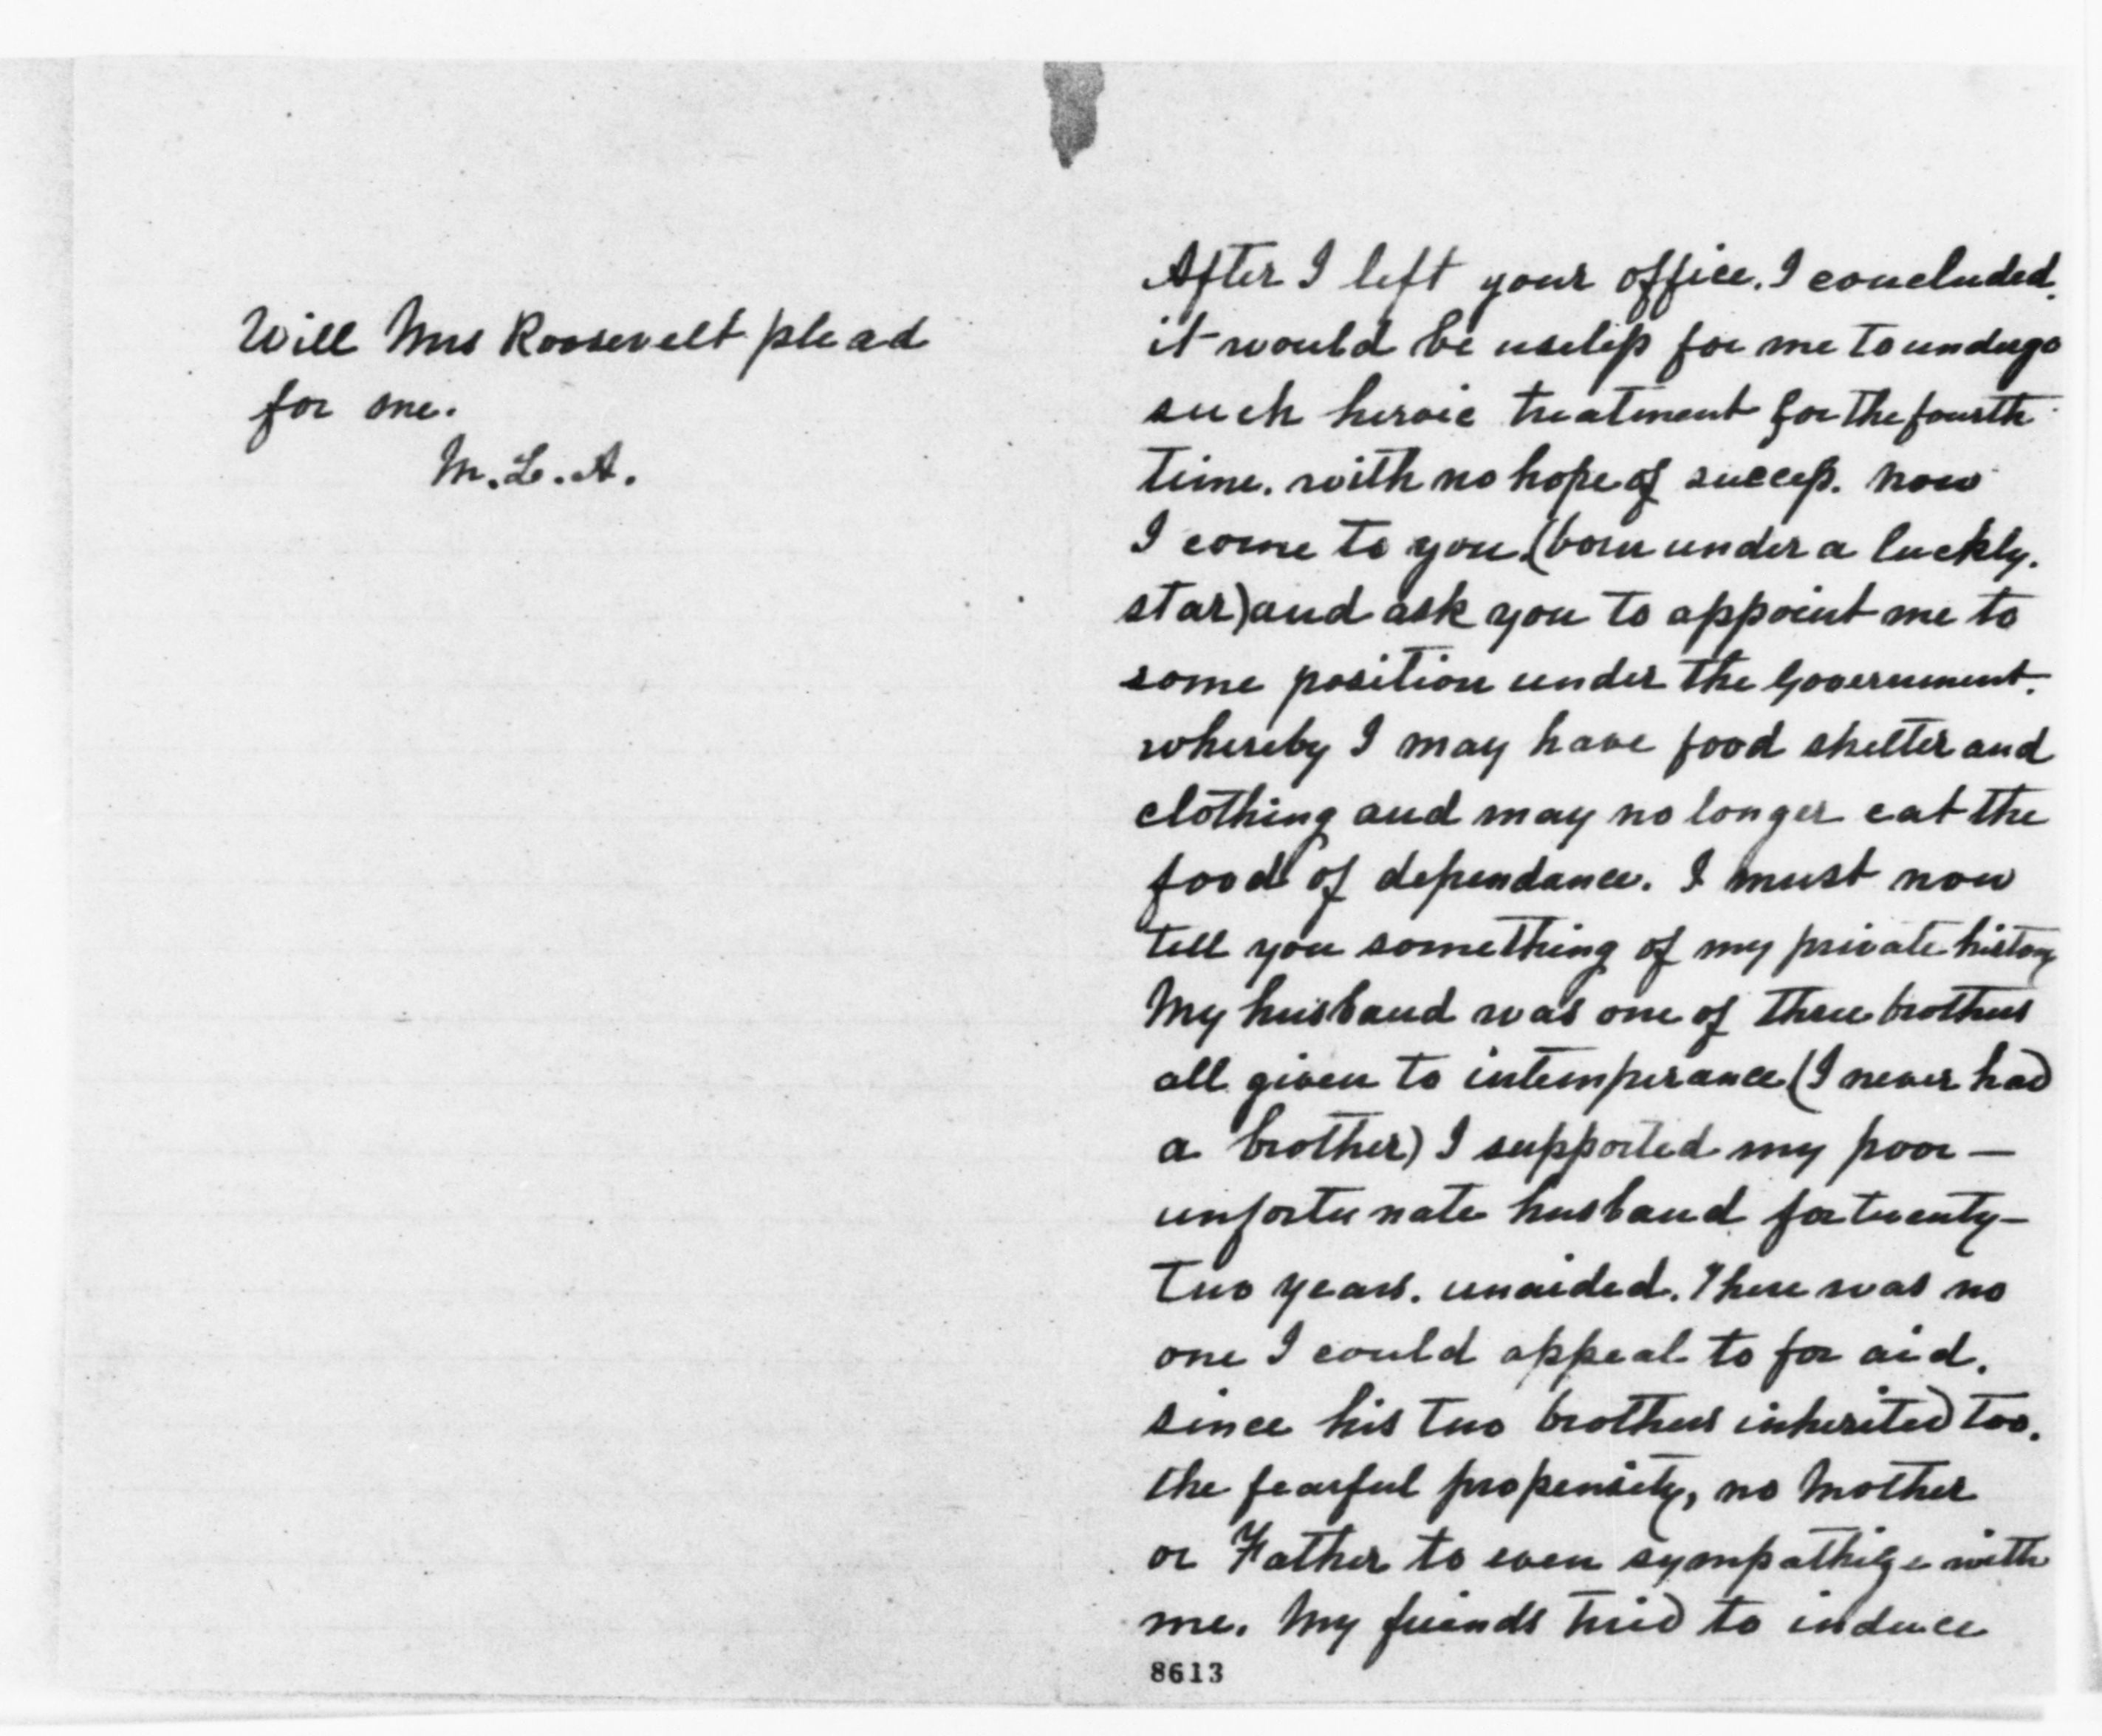 Will Mrs Roosevelt plead
for me.
M.L.A.
After I left your office. I concluded.
it would be useless for me to undergo
such heroic treatment for the fourth
time. with no hope of success. now
I come to you (born under a luckly.
star) and ask you to appoint me to
some position under the Government.
whereby I may have food shelter and
clothing and may no longer eat the
food of dependance. I must now
tell you something of my private history
My husband was one of three brothers
all given to intemperance (I never had
a brother) I supported my poor —
unfortunate husband for twenty-
two years. unaided. There was no
one I could appeal to for aid.
since his two brothers inherited too.
the fearful propensity, no Mother
or Father to even sympathize with
me. My friends tried to induce
8613